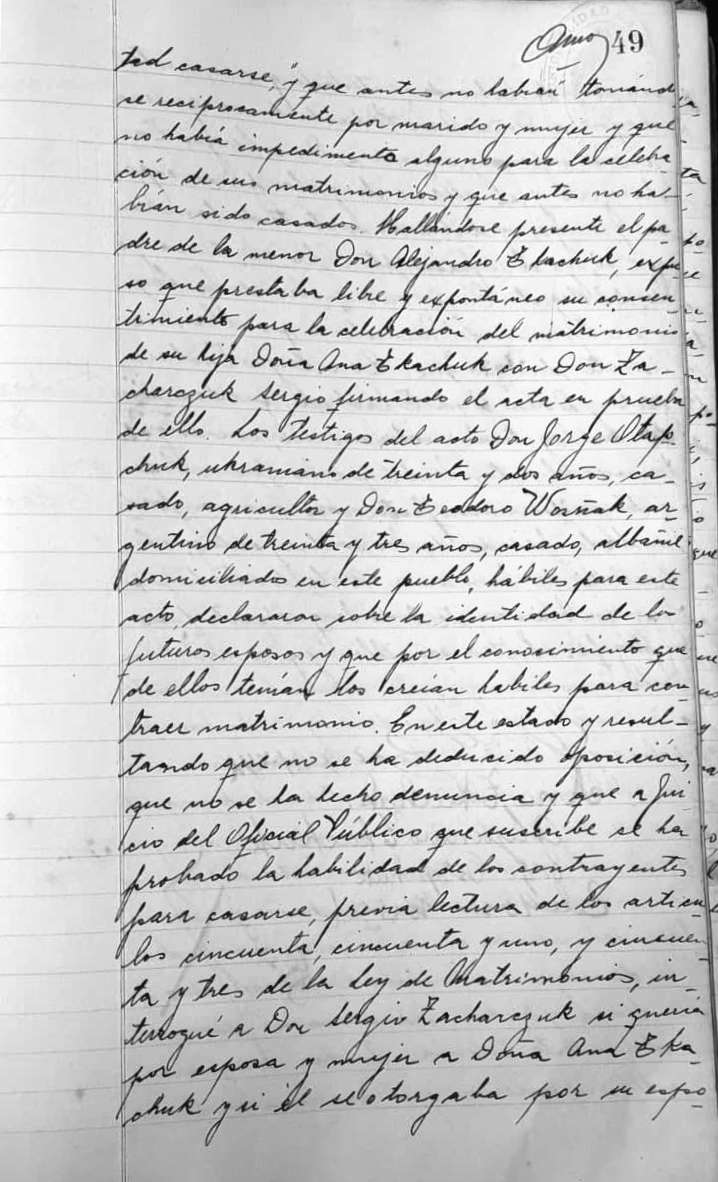 49
ted casarse, y que antes no habían tomándo
se reciprocamente por marido y mujer y que
no había impedimento alguno para la celebra
ción de sus matrimonios y que antes no ha-
bían sido casados. Hallándose presente el pa
dre de la menor Don Alejandro Tkachuk, expu
so que prestaba libre y expontáneo su consen
timiento para la celebración del matrimonio
de su hija Doña Ana Tkachuk con Don Za-
charczuk Sergio firmando el acta en prueba
de ello. Los testigos del acto Don Jorge Otap
chuk, ukraniano de treinta y dos años, ca-
sado, agricultor y Don Teodoro Wosñak, ar-
gentino de treinta y tres años, casado, albañil
domiciliados en este pueblo, hábiles para este
acto, declararon sobre la identidad de los
futuros esposos y que por el conocimiento que
de ellos tenían los creían habiles para con
traer matrimonio. En este estado y resul-
tando que no se ha deducido oposición,
que no se ha hecho denuncia y que a jui
cio del Oficial Público que suscribe se ha
probado la habilidad de los contrayentes
para casarse, previa lectura de los articu
los cincuenta, cincuenta y uno, y cincuen
ta y tres de la Ley de Matrimonios, in-
terrogué a Don Sergio Zacharczuk si quería
por esposa y mujer a Doña Ana Tka-
chuk y si él se otorgaba por su espo-